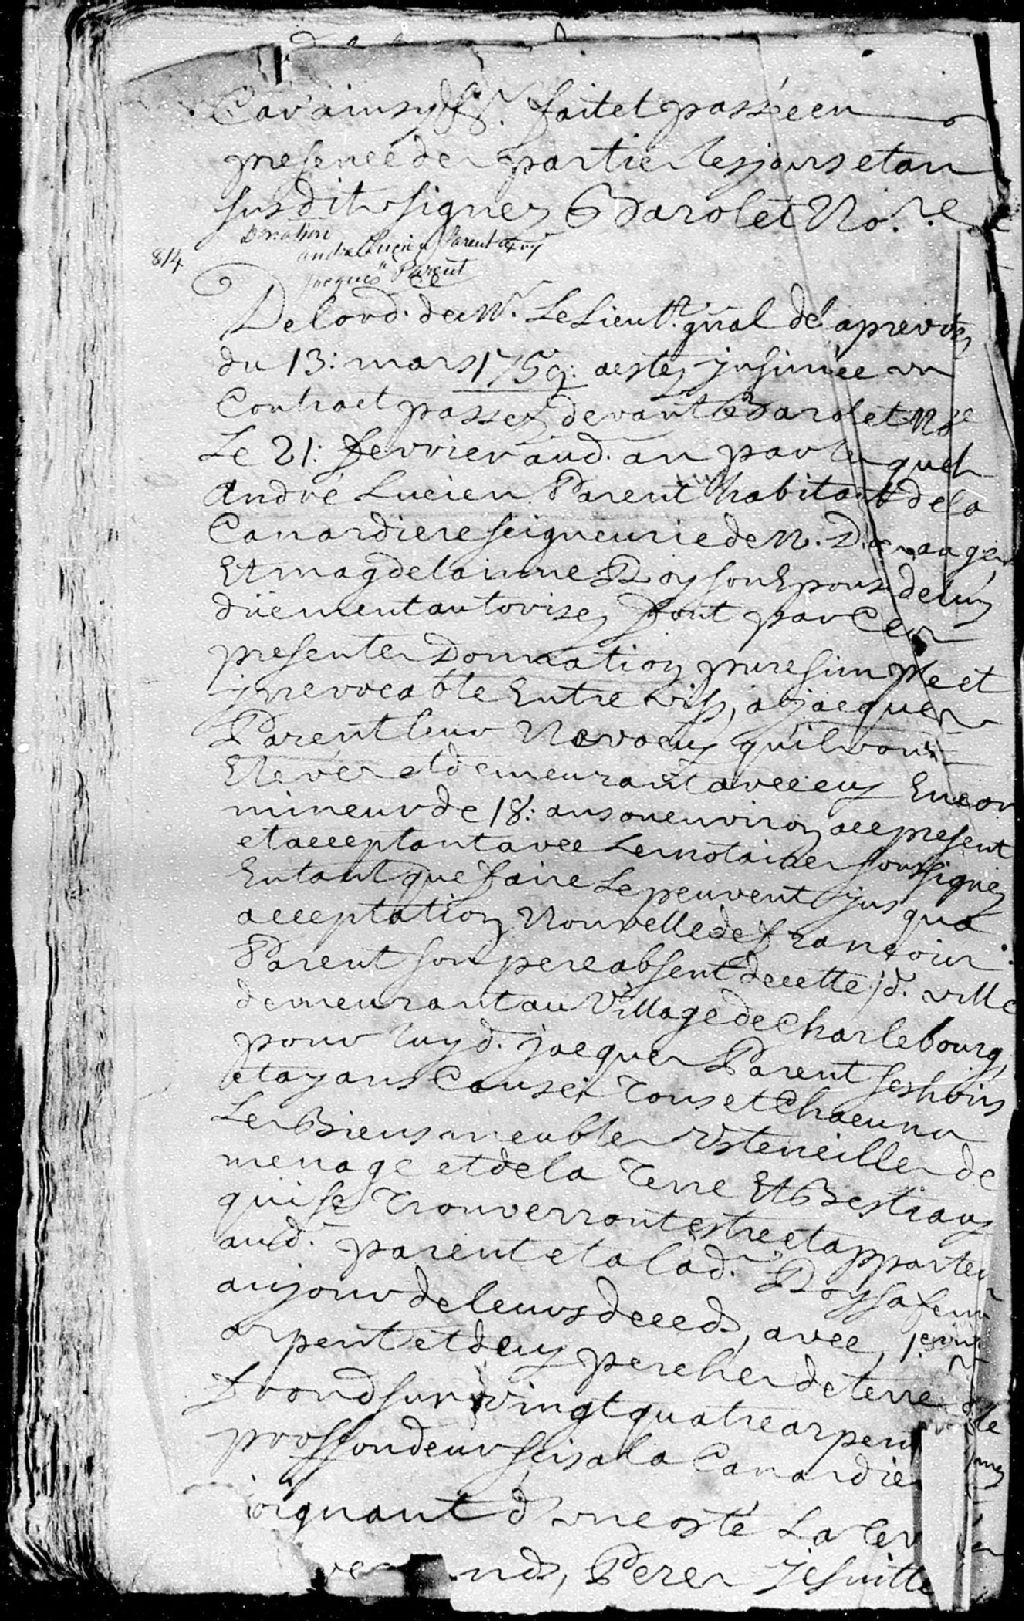 Car ainsy &c. fait et passée en
presence des parties les jours et an
susdits signez Barolet No.re
Donation
André Lucien Parent à
Jacques Parent
814
De l'ord. de Mr. Le Lieut. gñal de la prevosté
du 13: mars 1759: a esté insinuée un
Contract passez devant Barolet No.re
Le 21: fevrier aud. an par lequel
André Lucien Parent habitant de la
Canardiere seigneurie de N. D. des anges
Et magdelainne Roy son Epouse de luy
düement autorisez font par Ces
presentes Donnation pure simple et
irrevocable Entre vifs, a jacques
Parent leur Neveu qu'ils ont
Elever et demeurant avec eux Encor
mineur de 18: ans ou environ a ce present
et acceptant avec Les notaires soussignez
Entant que faire Le peuvent jusqu'a
acceptation Nouvelle de francois
Parent son pere absent de cette d. ville
demeurant au Village de Charlebourg,
pour luy d. jacques Parent ses hoirs
et ayans Causes Tous et Chacuns
Les Biens meubles Ustencilles de
menage et de la Terre Et Bestiaux
qui se Trouverront estre et apparten
aud. parent et a lad. Roy sa femme
au jour de leurs deceds, avec
arpent et deux perches de terre de
frond sur vingt quatre arpens
proffondeur scis a la Canardie
joignant d'une costé La Ter
Reverends, Peres Jesuittes